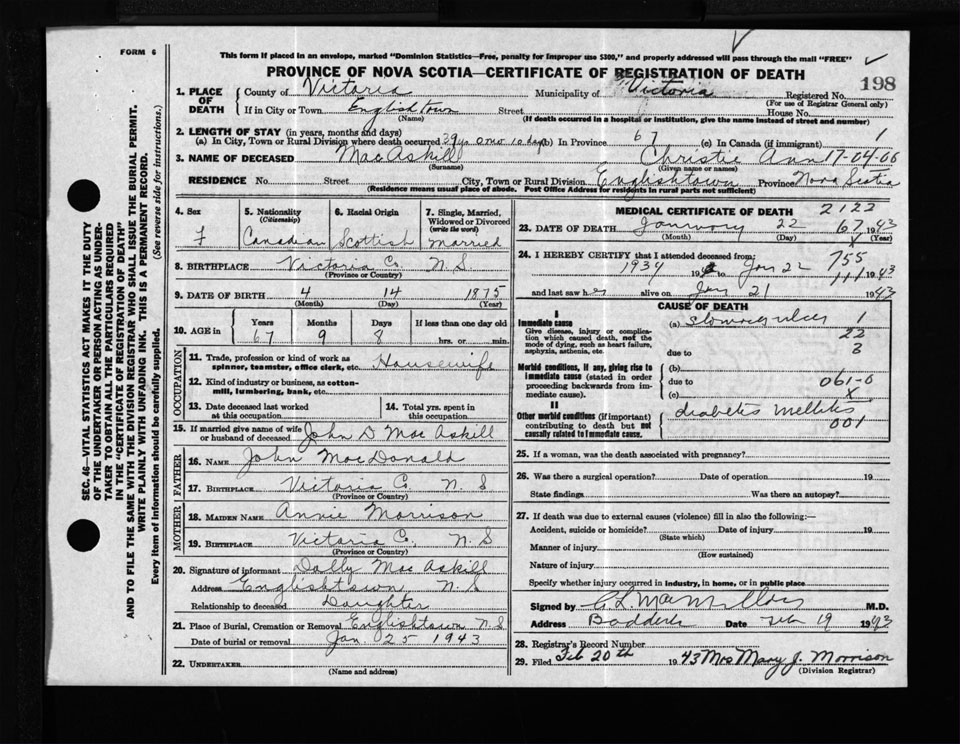 FORM 6
This form if placed in an envelope, marked "Dominion Statistics—Free, penalty for improper use $300," and properly addressed will pass through the mail "FREE"
PROVINCE OF NOVA SCOTIA—CERTIFICATE OF REGISTRATION OF DEATH
198
1. PLACE OF DEATH County of Victoria Municipality of Victoria Registered No.
(For use of Registrar General only)
If in City or Town Englishtown Street House No.
(Name) (If death occurred in a hospital or institution, give the name instead of street and number)
2. LENGTH OF STAY (in years, months and days)
(a) In City, Town or Rural Division where death occurred 39 yrs 0 mo 10 days (b) In Province 67 (c) In Canada (if immigrant) 1
3. NAME OF DECEASED MacAskill Christie Ann 17-04-06
(Surname) (Given name or names)
RESIDENCE No. Street City, Town or Rural Division Englishtown Province Nova Scotia
(Residence means usual place of abode. Post Office Address for residents in rural parts not sufficient)
4. Sex
F
5. Nationality
(Citizenship)
Canadian
6. Racial Origin
Scottish
7. Single, Married, Widowed or Divorced
(write the word)
Married
8. BIRTHPLACE Victoria Co. N. S.
(Province or Country)
9. DATE OF BIRTH 4 14 1875
(Month) (Day) (Year)
10. AGE in Years Months Days If less than one day old
67 9 8 hrs. or min.
OCCUPATION
11. Trade, profession or kind of work as spinner, teamster, office clerk, etc. Housewife
12. Kind of industry or business, as cotton-mill, lumbering, bank, etc.
13. Date deceased last worked at this occupation
14. Total yrs. spent in this occupation
15. If married give name of wife or husband of deceased John D MacAskill
FATHER
16. NAME John MacDonald
17. BIRTHPLACE Victoria C. N. S
(Province or Country)
MOTHER
18. MAIDEN NAME Annie Morrison
19. BIRTHPLACE Victoria Co. N. S
(Province or Country)
20. Signature of informant Dolly MacAskill
Address Englishtown N. S
Relationship to deceased Daughter
21. Place of Burial, Cremation or Removal Englishtown N S
Date of burial or removal Jan 25 1943
22. UNDERTAKER
(Name and address)
MEDICAL CERTIFICATE OF DEATH 2122
23. DATE OF DEATH January 22 1943
67
x
(Month) (Day) (Year)
24. I HEREBY CERTIFY that I attended deceased from:
755
1934 to Jan 22 1943
111
and last saw her alive on Jan 21 1943
CAUSE OF DEATH
I
Immediate cause
Give disease, injury or complication which caused death, not the mode of dying, such as heart failure, asphyxia, asthenia, etc.
(a) Stomach ulcer 1
22
3
due to
Morbid conditions, if any, giving rise to immediate cause (stated in order proceeding backwards from immediate cause).
(b)
due to 061-0
(c) x
II
Other morbid conditions (if important) contributing to death but not causally related to immediate cause.
diabetes mellitis
001
25. If a woman, was the death associated with pregnancy?
26. Was there a surgical operation? Date of operation 19
State findings Was there an autopsy?
27. If death was due to external causes (violence) fill in also the following:—
Accident, suicide or homicide? Date of injury 19
(State which)
Manner of injury
(How sustained)
Nature of injury
Specify whether injury occurred in industry, in home, or in public place
Signed by C. L. MacMillan M.D.
Address Baddeck Date Feb 19 1943
28. Registrar's Record Number
29. Filed Feb 20th 1943 Mrs Mary J. Morrison
(Division Registrar)
SEC. 46—VITAL STATISTICS ACT MAKES IT THE DUTY
OF THE UNDERTAKER OR PERSON ACTING AS UNDER-
TAKER TO OBTAIN ALL THE PARTICULARS REQUIRED
IN THE "CERTIFICATE OF REGISTRATION OF DEATH"
AND TO FILE THE SAME WITH THE DIVISION REGISTRAR WHO SHALL ISSUE THE BURIAL PERMIT.
WRITE PLAINLY WITH UNFADING INK. THIS IS A PERMANENT RECORD.
Every item of information should be carefully supplied. (See reverse side for instructions.)